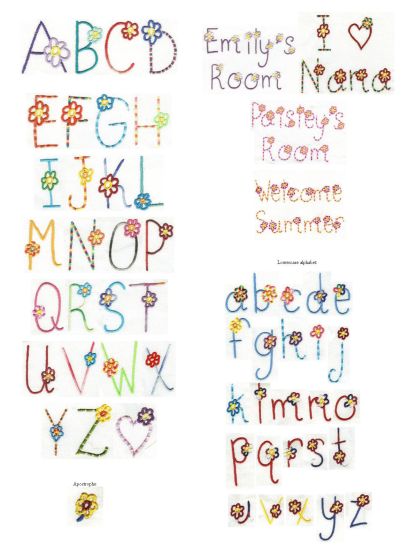 ABCD
EFGH
IJKL
MNOP
QRST
UVWX
YZ
Apostrophe
Emily's
Room
I
Nana
Paisley's
Room
Welcome
Summer
Lowercase alphabet
abcde
fghij
klmno
pqrst
uvxyz